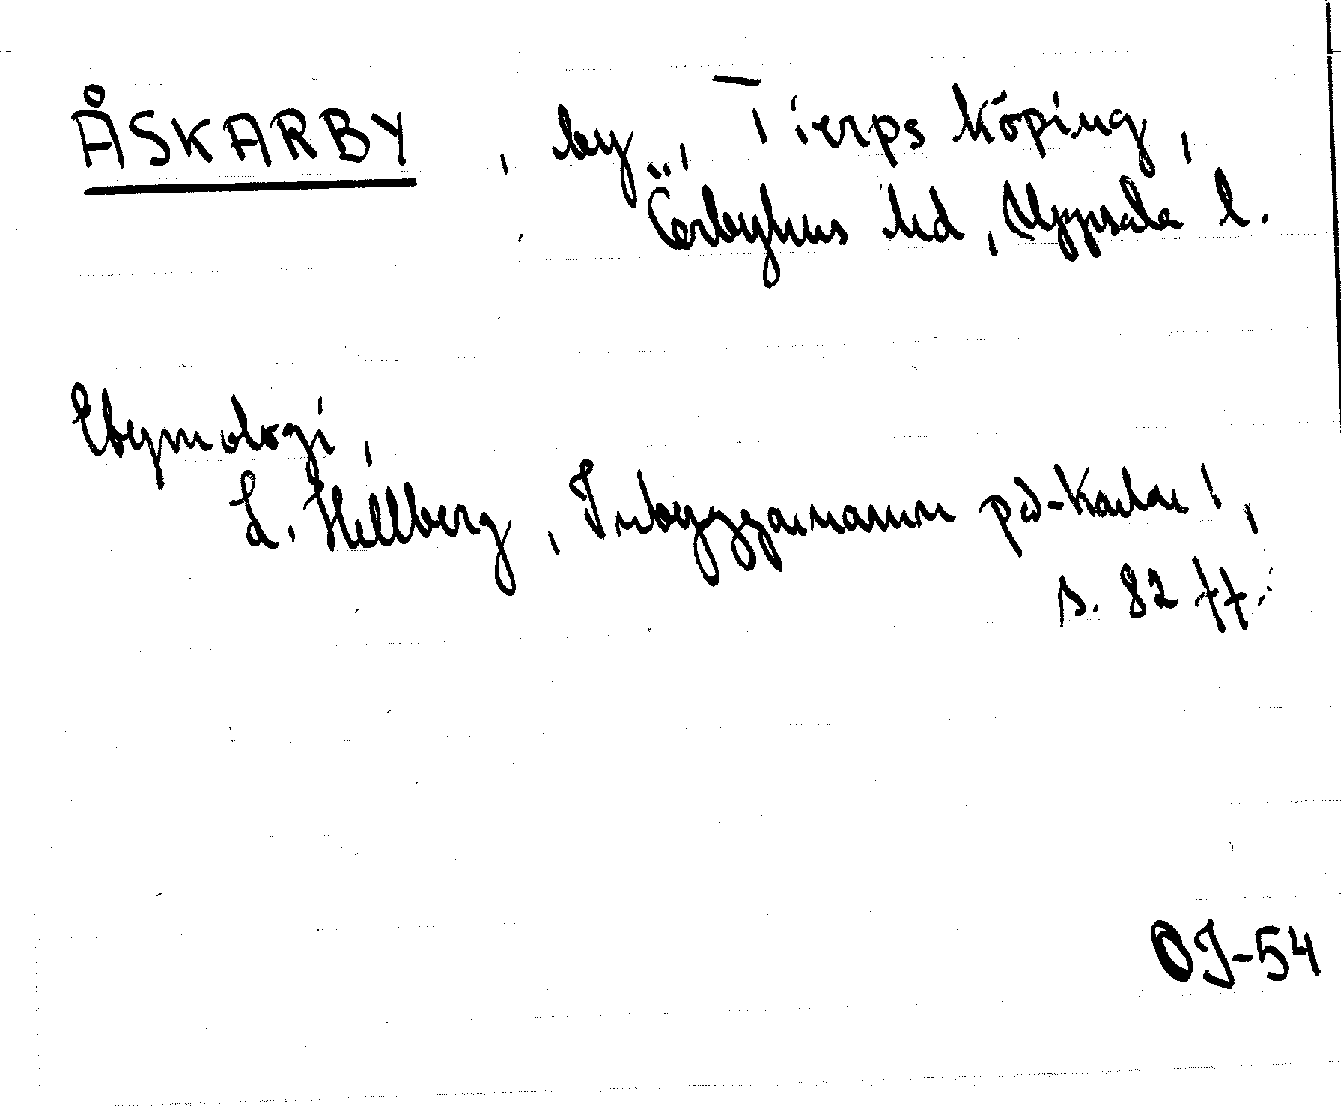 ÅSKARBY, by, Tierps köping,
Örbyhus hd, Uppsala l.
Etymologi,
L. Hellberg, Inbyggarnamn på -karlar,
s. 82 ff.
OJ-54